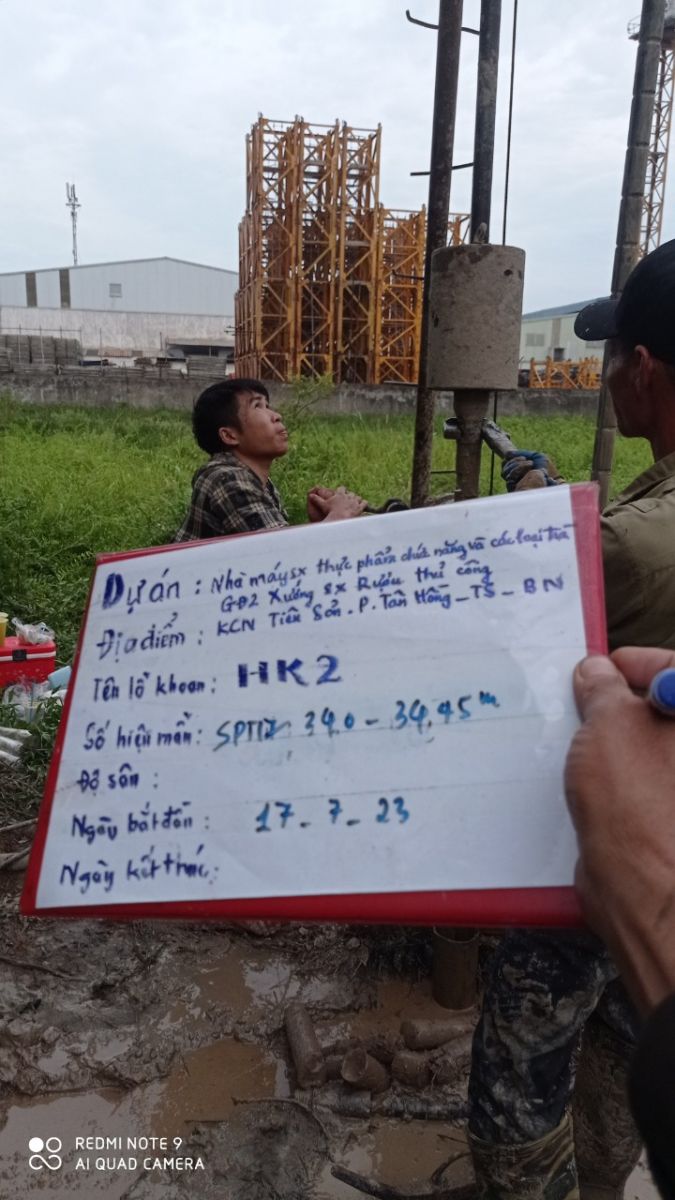 Dự án : Nhà máy sx thực phẩm chức năng và các loại trà
GĐ2 Xưởng sx Rượu thủ công
Địa điểm : KCN Tiên Sơn . P. Tân Hồng _ TS _ BN
Tên lỗ khoan : HK2
Số hiệu mẫu : 34,0 - 34,45 m
Độ sâu :
Ngày bắt đầu : 17 - 7 - 23
Ngày kết thúc :
REDMI NOTE 9
AI QUAD CAMERA